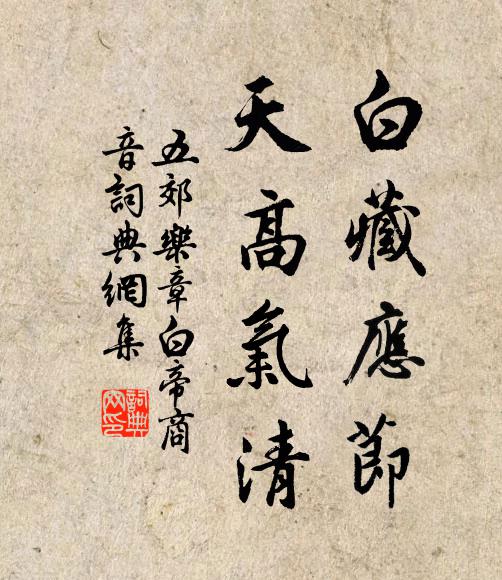 白藏應節
天高氣清
五郊樂章白帝商
音詞典網集
詞典网印